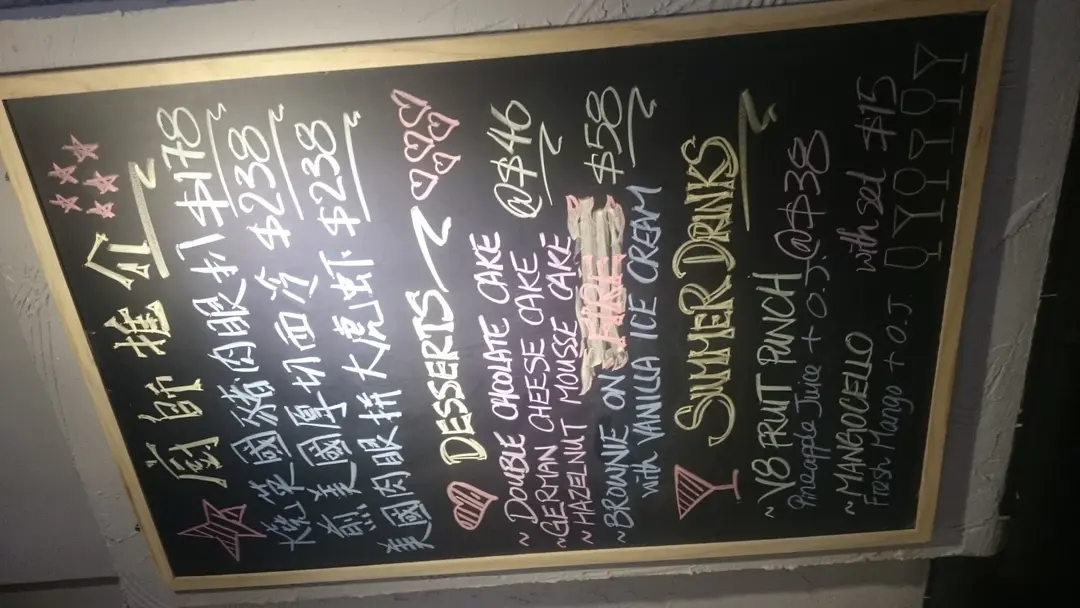 廚師推介
燒英國豬肉眼扒 $178
煎美國厚切西冷 $238
美國肉眼拼大虎虾 $238
DESSERTS
~ DOUBLE CHOLATE CAKE
~ GERMAN CHEESE CAKE @$46
~ HAZELNUT MOUSSE CAKE
~ BROWNIE ON FIRE $58
with VANILLA ICE CREAM
SUMMER DRINKS
~ VB FRUIT PUNCH @$38
Pineapple Juice + O.J.
~ MANGOCELLO with set $15
Fresh Mango + O.J